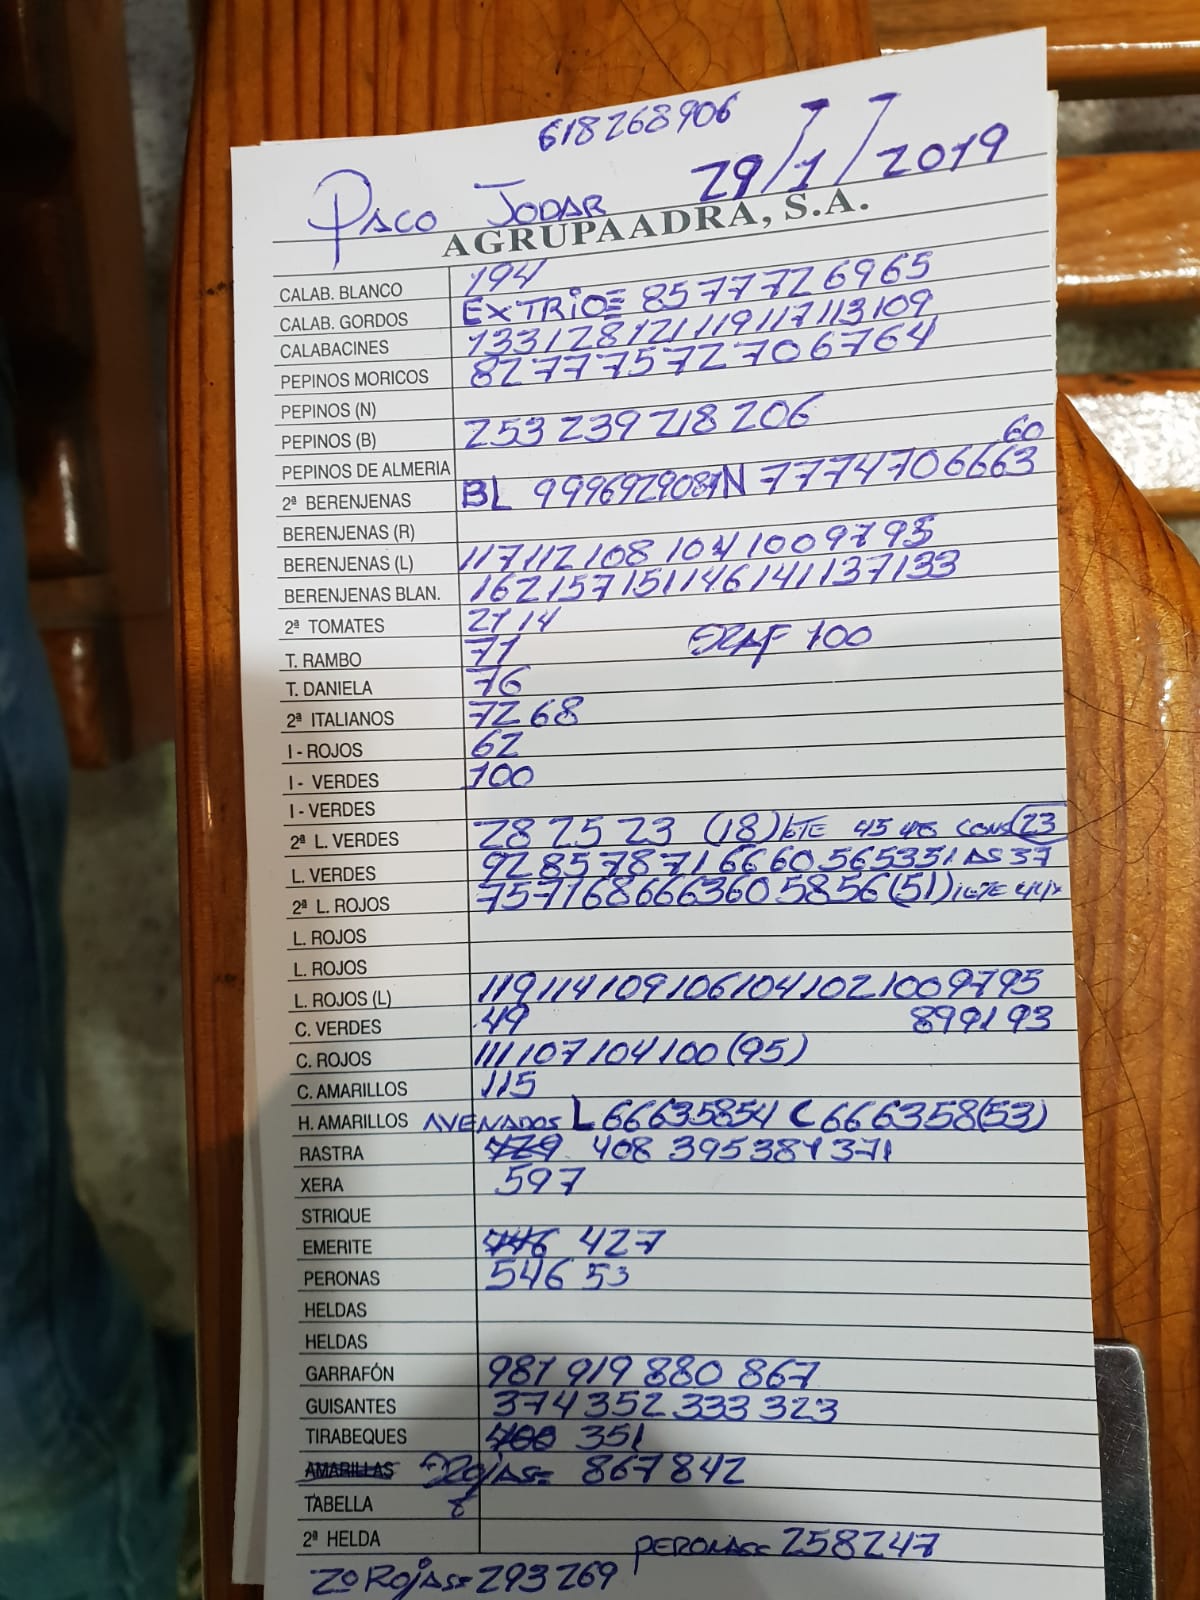 618268906
PACO JODAR 29/1/2019
AGRUPAADRA, S.A.
CALAB. BLANCO 194
CALAB. GORDOS EXTRIOE 85 77 72 69 65
CALABACINES 133 128 121 119 117 113 109
PEPINOS MORICOS 82 77 75 72 70 67 64
PEPINOS (N)
PEPINOS (B) 253 239 218 206
PEPINOS DE ALMERIA 60
2ª BERENJENAS BL 99 96 92 90 87 N 77 74 70 66 63
BERENJENAS (R)
BERENJENAS (L) 117 112 108 104 100 97 95
BERENJENAS BLAN. 162 157 151 146 141 137 133
2ª TOMATES 21 14
T. RAMBO 71 100
T. DANIELA 76
2ª ITALIANOS 72 68
I - ROJOS 62
I - VERDES 100
I - VERDES
2ª L. VERDES 28 25 23 (18) LTE 45 40 CONS 23
L. VERDES 92 85 78 71 66 60 56 53 51 AS 37
2ª L. ROJOS 75 71 68 66 63 60 58 56 (51)
L. ROJOS
L. ROJOS
L. ROJOS (L) 119 114 109 106 104 102 100 97 95
C. VERDES 49 89 91 93
C. ROJOS 111 107 104 100 (95)
C. AMARILLOS 115
H. AMARILLOS AVENADOS L 66 63 58 54 C 66 63 58 (53)
RASTRA 429 408 395 384 371
XERA 597
STRIQUE
EMERITE 446 427
PERONAS 546 53
HELDAS
HELDAS
GARRAFÓN 981 919 880 867
GUISANTES 374 352 333 323
TIRABEQUES 400 351
AMARILLAS ROJAS= 867 842
TABELLA 8
2ª HELDA PERONAS= 258 247
2º ROJAS= 293 269